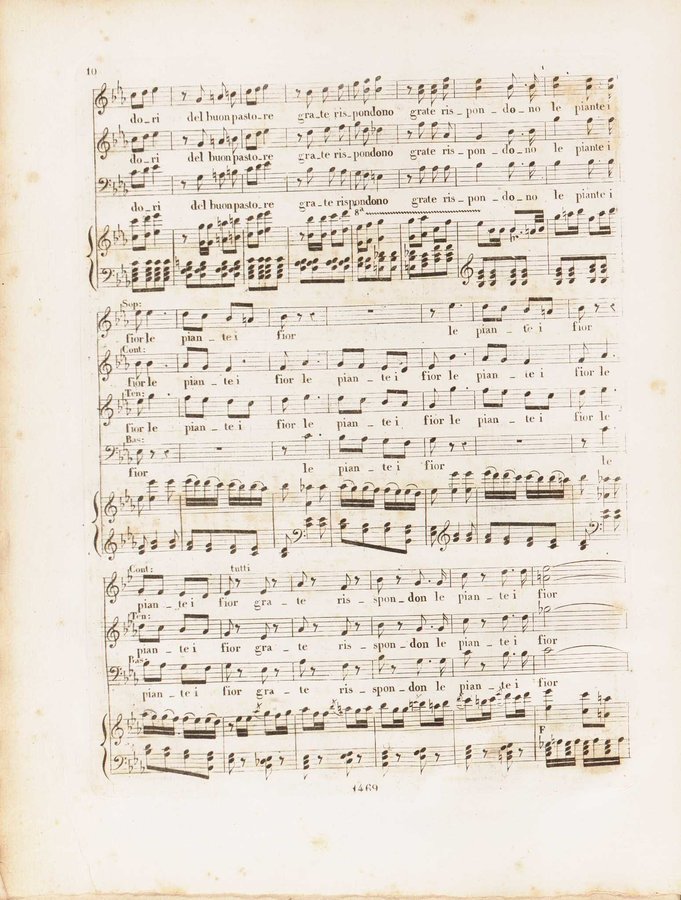 10
do_ri del buon pasto_re gra_te ris_pondono grate ris_pon_do_no le piante i
do_ri del buon pasto_re gra_te ris_pondono grate ris_pon_do_no le piante i
do_ri del buon pasto_re gra_te rispondono grate ris_pon_do_no le piante i
8ª
Sop:
fior le pian_te i fior le pian_te i fior
Cont:
fior le pian_te i fior le pian_te i fior le pian_te i fior le
Ten:
fior le pian_te i fior le pian_te i fior le pian_te i fior le
Bas:
fior le pian_te i fior le
Cont: tutti
pian_te i fior gra_te ris_pon_don le pian_te i fior
Ten:
pian_te i fior gra_te ris_pon_don le pian_te i fior
Bas
pian_te i fior gra_te ris_pon_don le pian_te i fior
F
1469